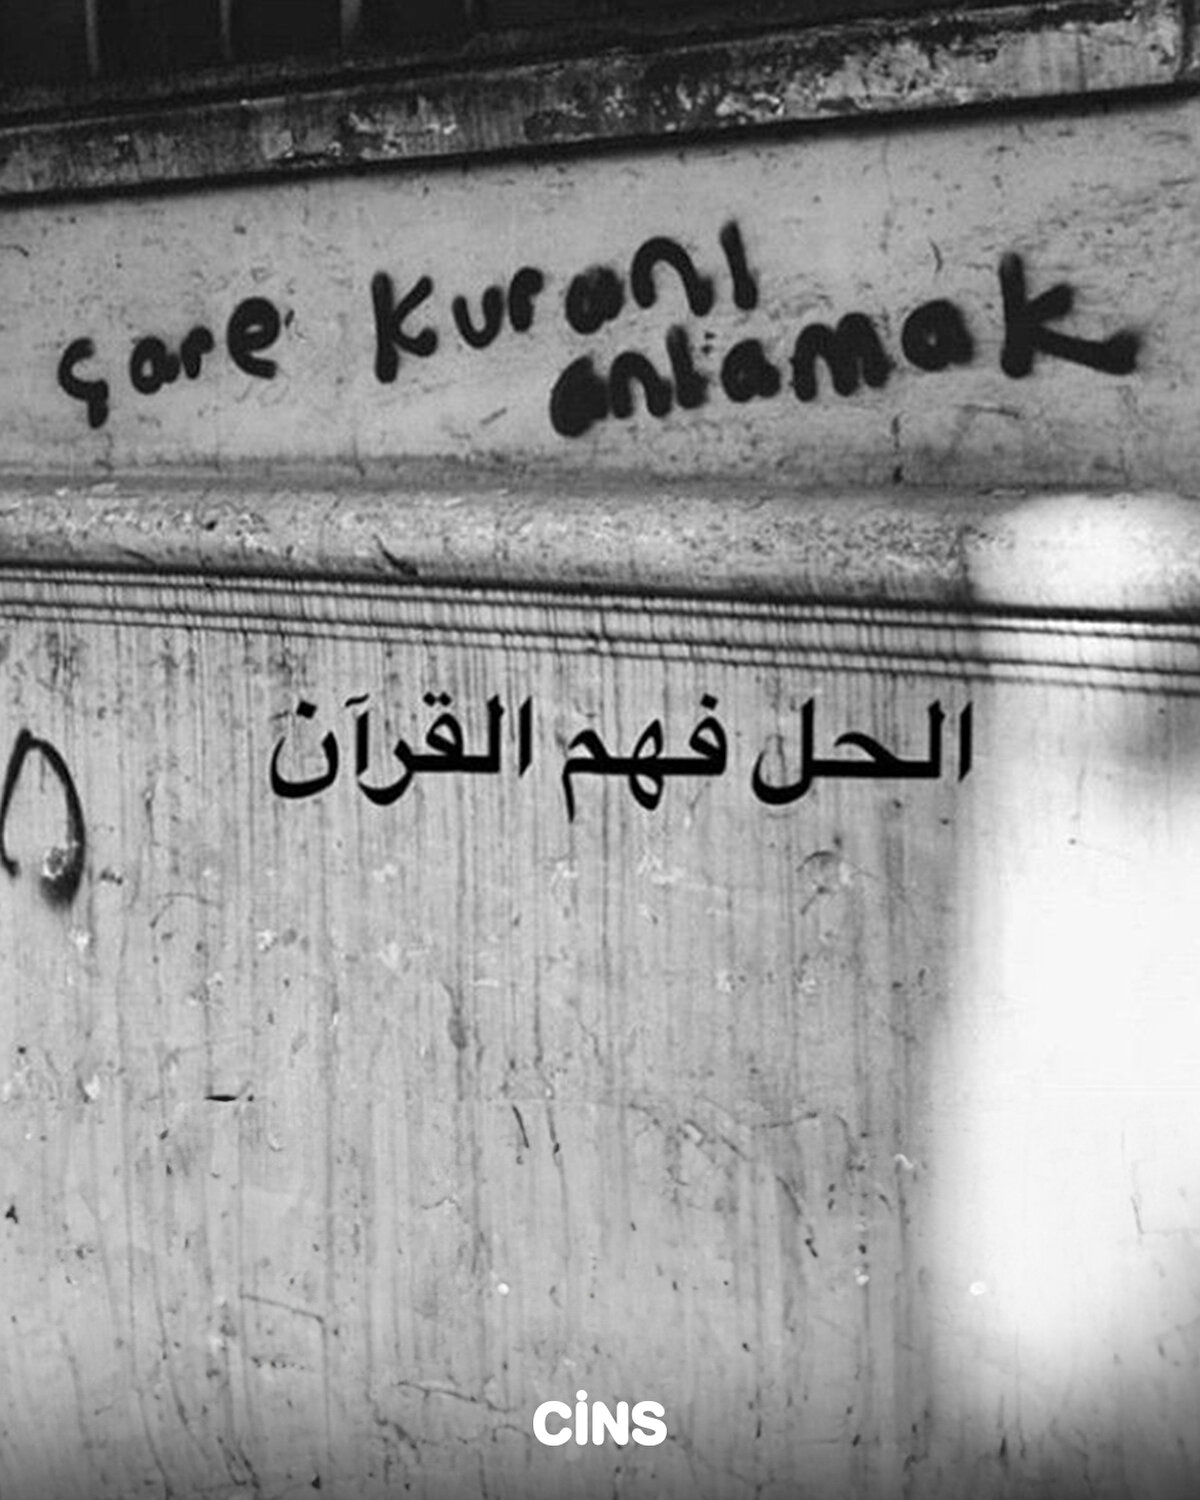 çare Kuranı
anlamak
الحل فهم القرآن
CİNS